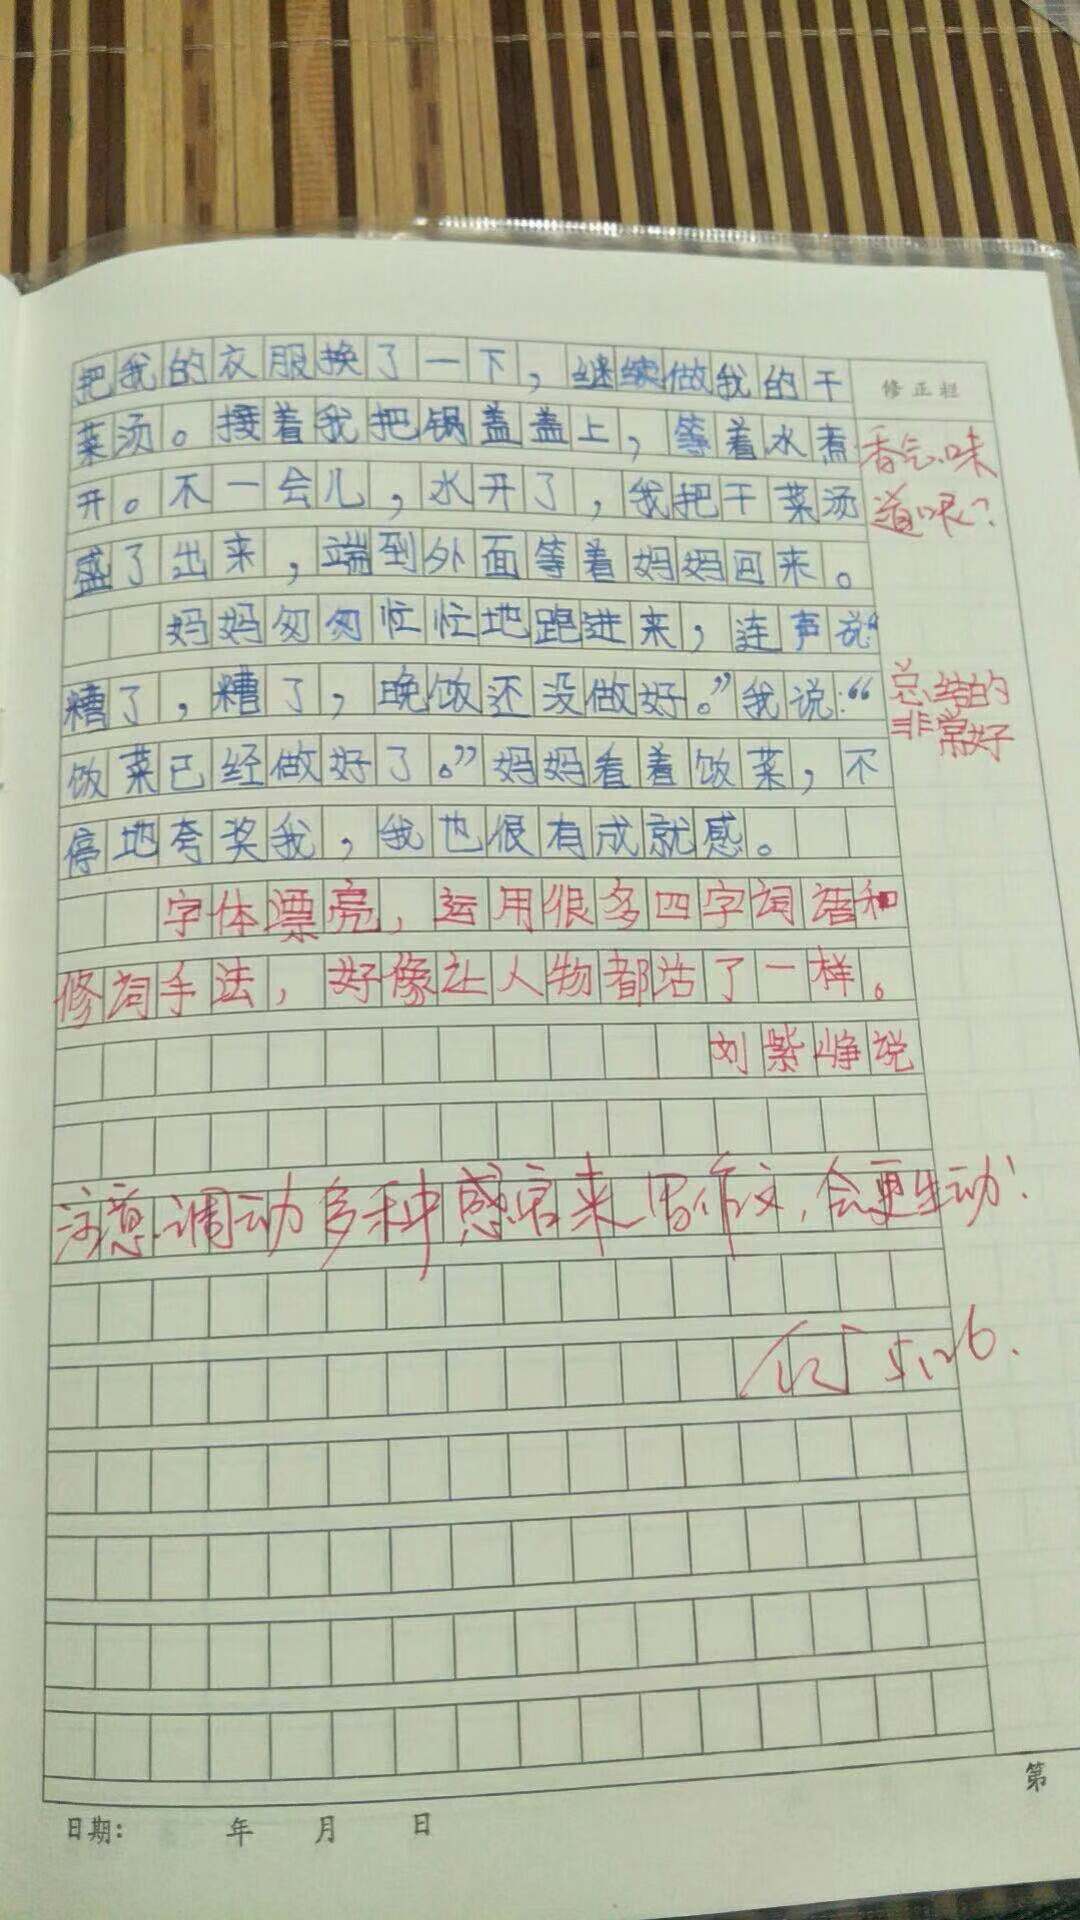 把我的衣服换了一下，继续做我的干
修正栏
菜汤。接着我把锅盖盖上，等着水煮
香气、味
开。不一会儿，水开了，我把干菜汤
道呢？
盛了出来，端到外面等着妈妈回来。
妈妈匆匆忙忙地跑进来，连声说：“
糟了，糟了，晚饭还没做好。”我说：“
总结的
非常好
饭菜已经做好了。”妈妈看着饭菜，不
停地夸奖我，我也很有成就感。
字体漂亮，运用很多四字词语和
修词手法，好像让人物都活了一样。
刘紫峥说
注意调动多种感官来写作文，会更生动！
5.26.
第
日期： 年 月 日